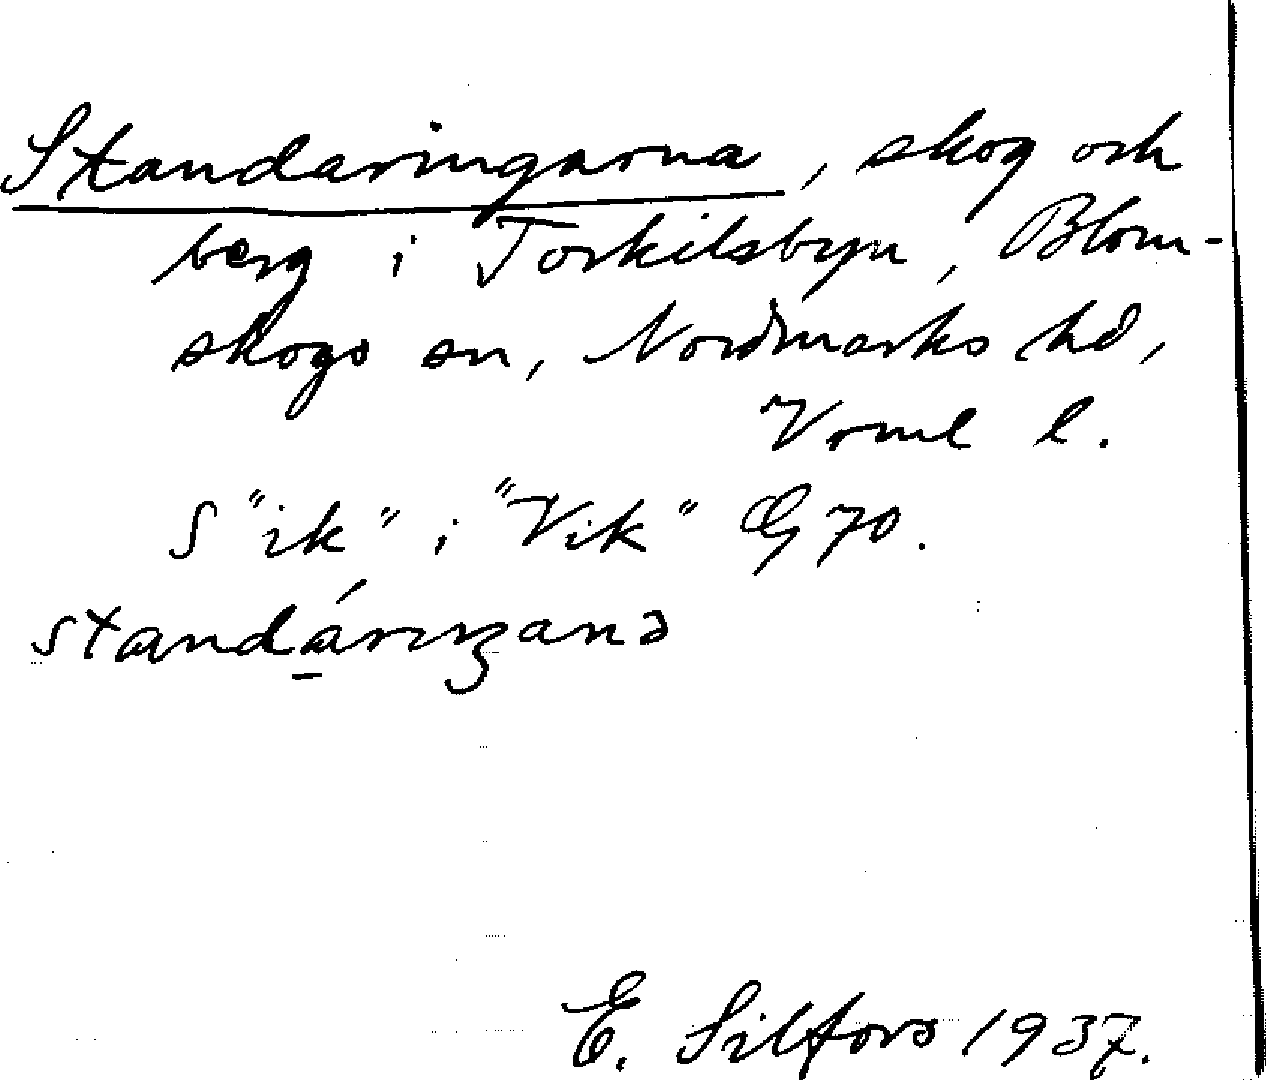 Standaringarna, skog och
berg i Torkilsbyn, Blom-
skogs sn, Nordmarks hd,
Vrml l.
S "ik" i "Vik" G 70.
standáringanə
E. Silfors 1937.